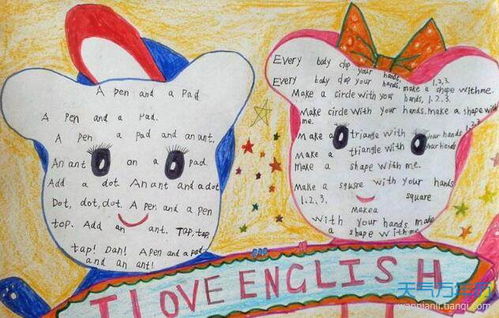 A pen and a pad
A pen and a pad.
A pen a pad and an ant.
An ant on a pad.
Add a dot. An ant and a dot
Dot, dot, dot. A pen and a pen
top. Add an ant. Tap, tap
tap! Dan! A pen and a pad
and an ant!
Every body clap your hands,
Every body clap your hands, 1,2,3.
Make a circle with your hands, make a shape with me.
hands, 1.2.3.
Make circle with your hands. make a shape with
me.
Make a triangle with your hands, 1,2,3
Make a triangle with your hands
Make a shape with me.
Make a square with your hands
1.2.3. square
Make a
with your hands make
a shape with me.
I LOVE ENGLISH
wannianli.tianqi.com